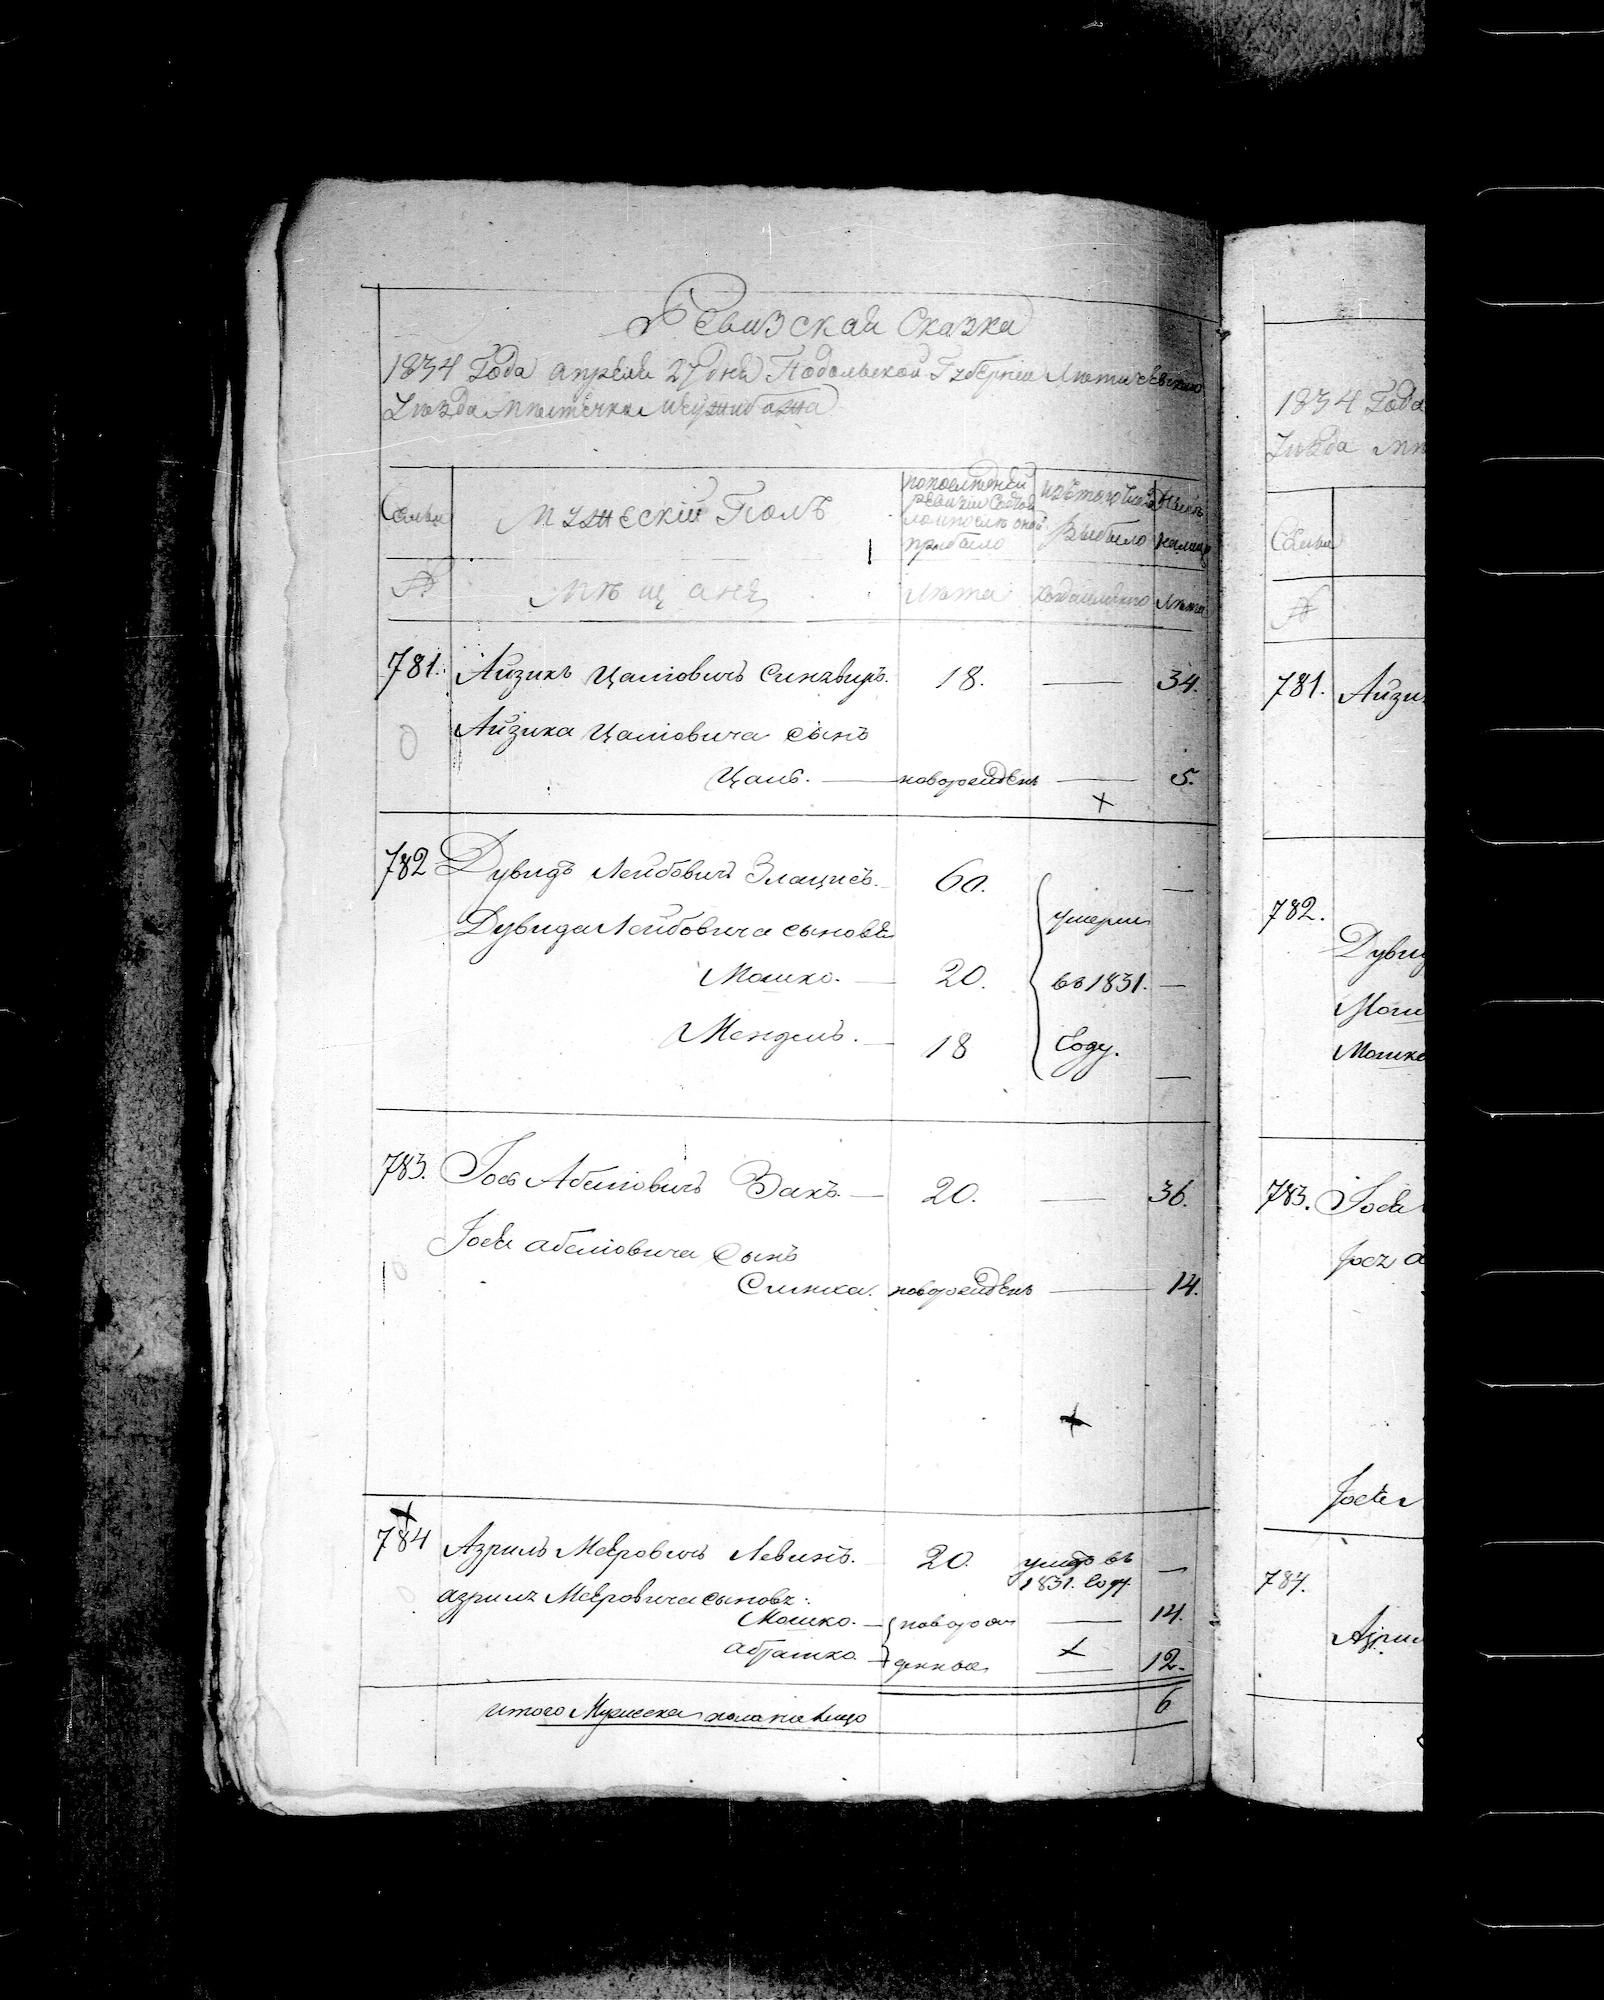 Ревизская Сказка
1834 Года апреля 27 дня Подольской Губернии Литичевского
Уѣзда Мѣстечка Межибожа
Семьи
Мужескій Полъ
по последней ревизіи состояло и после оной прибыло
Изъ того числа Выбыло
Ныне налицо
№
Мѣщане
Лѣта
Когда именно
Лѣта
781. Айзикъ Цалiовичъ Синявиръ. 18. — 34.
Айзика Цалiовича сынъ
Цаль. — новорожденъ — 5.
782 Дувидъ Лейбовичъ Злацисъ. 60. —
Дувида Лейбовича сыновья
умерли
Мошко. — 20. въ 1831. —
Мендель. — 18 Году. —
783. Іосъ Абелiовичъ Закъ. — 20. — 36.
Іося абелiовича Сынъ
Симха. новорожденъ — 14.
784 Азриль Меѣровичъ Левинъ. 20. умеръ въ 1831. Году —
азриля Меѣровича сыновья:
Мошко. — новорож — 14.
абрашко — денные — 12.
итого Мужеска пола на лицо 6
1834 Года
Уѣзда
Семьи
№
781. Айзи
782.
Дуви
Мош
Мошко
783. Іося
784.
Азри